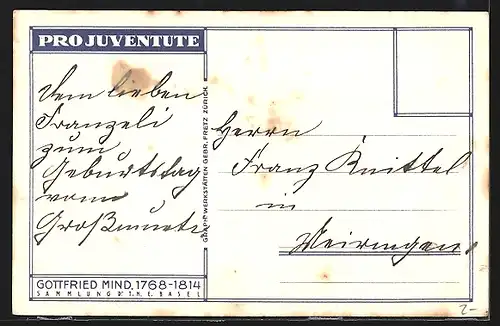 PRO JUVENTUTE
Dem lieben
Franzeli
zum
Geburtstag
vom
Großmuetti
GOTTFRIED MIND, 1768-1814
SAMMLUNG Dr. T. H. E. BASEL
GRAPH. WERKSTÄTTEN GEBR. FRETZ ZÜRICH
Herrn
Franz Knittel
in
Meiringen.
2-